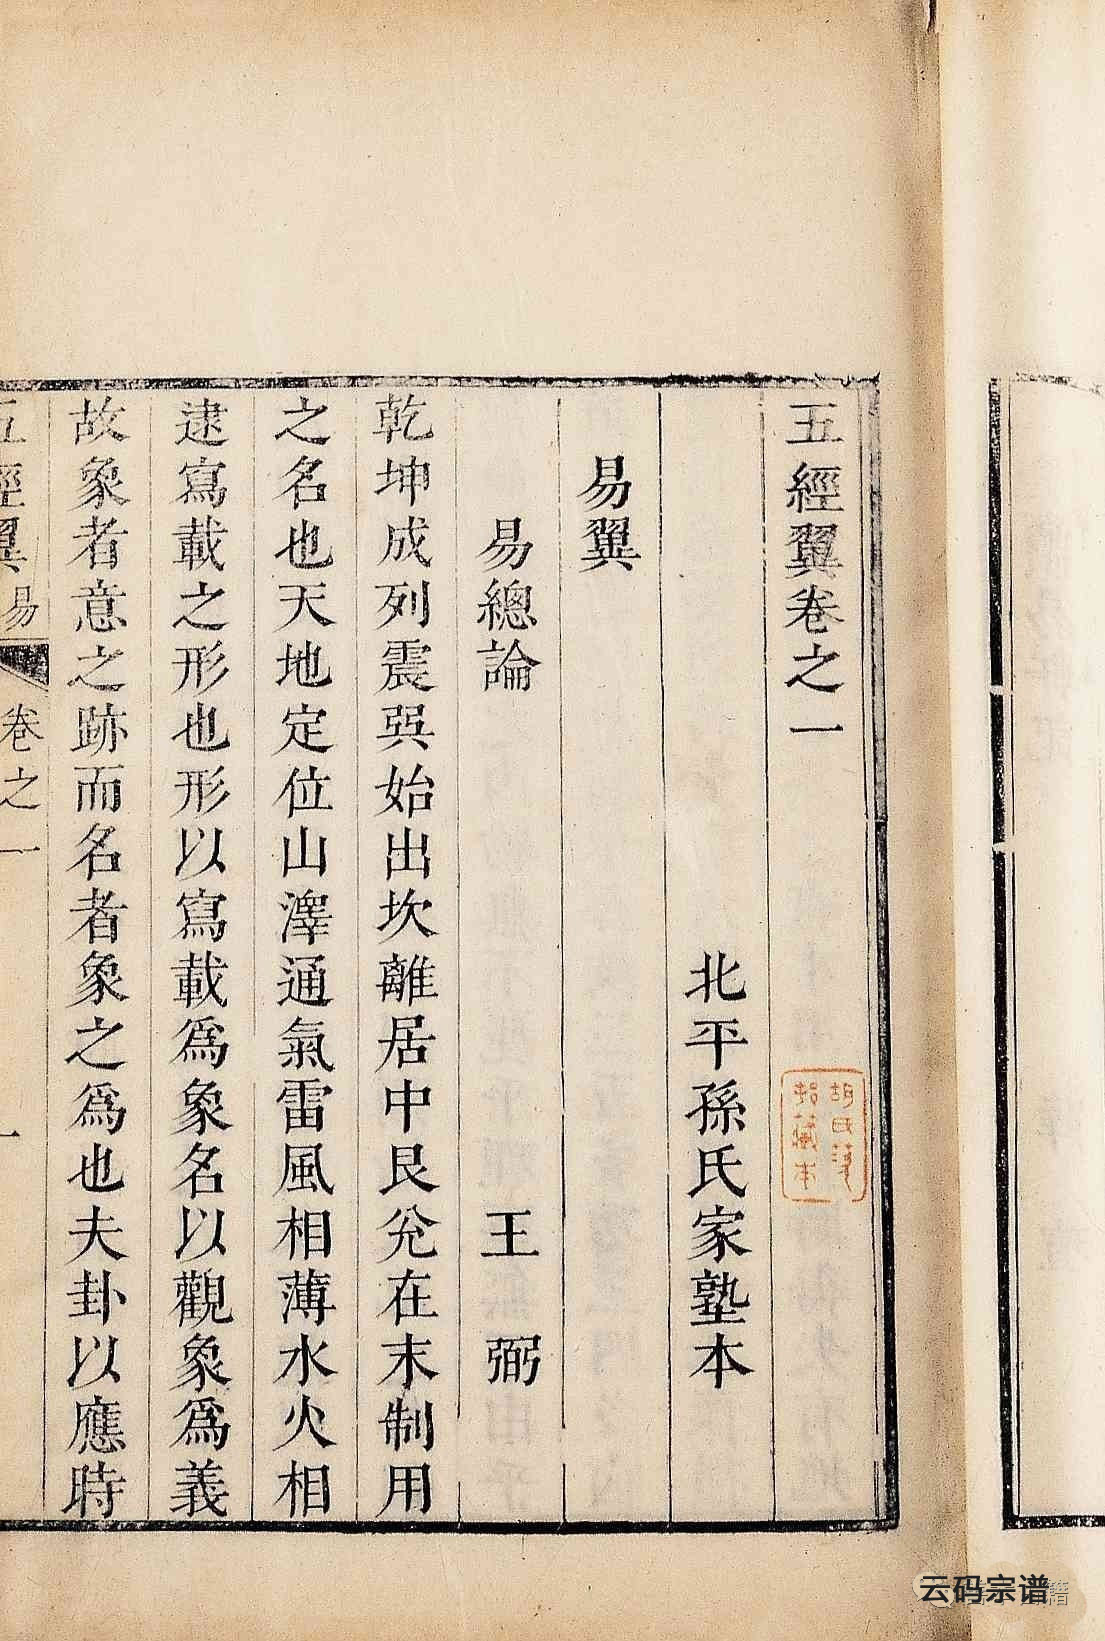 五經翼卷之一
北平孫氏家塾本
易翼
易總論 王弼
乾坤成列震巽始出坎離居中艮兊在末制用
之名也天地定位山澤通氣雷風相薄水火相
逮寫載之形也形以寫載爲象名以觀象爲義
故象者意之跡而名者象之爲也夫卦以應時
五經翼 易 卷之一 一
云码宗谱